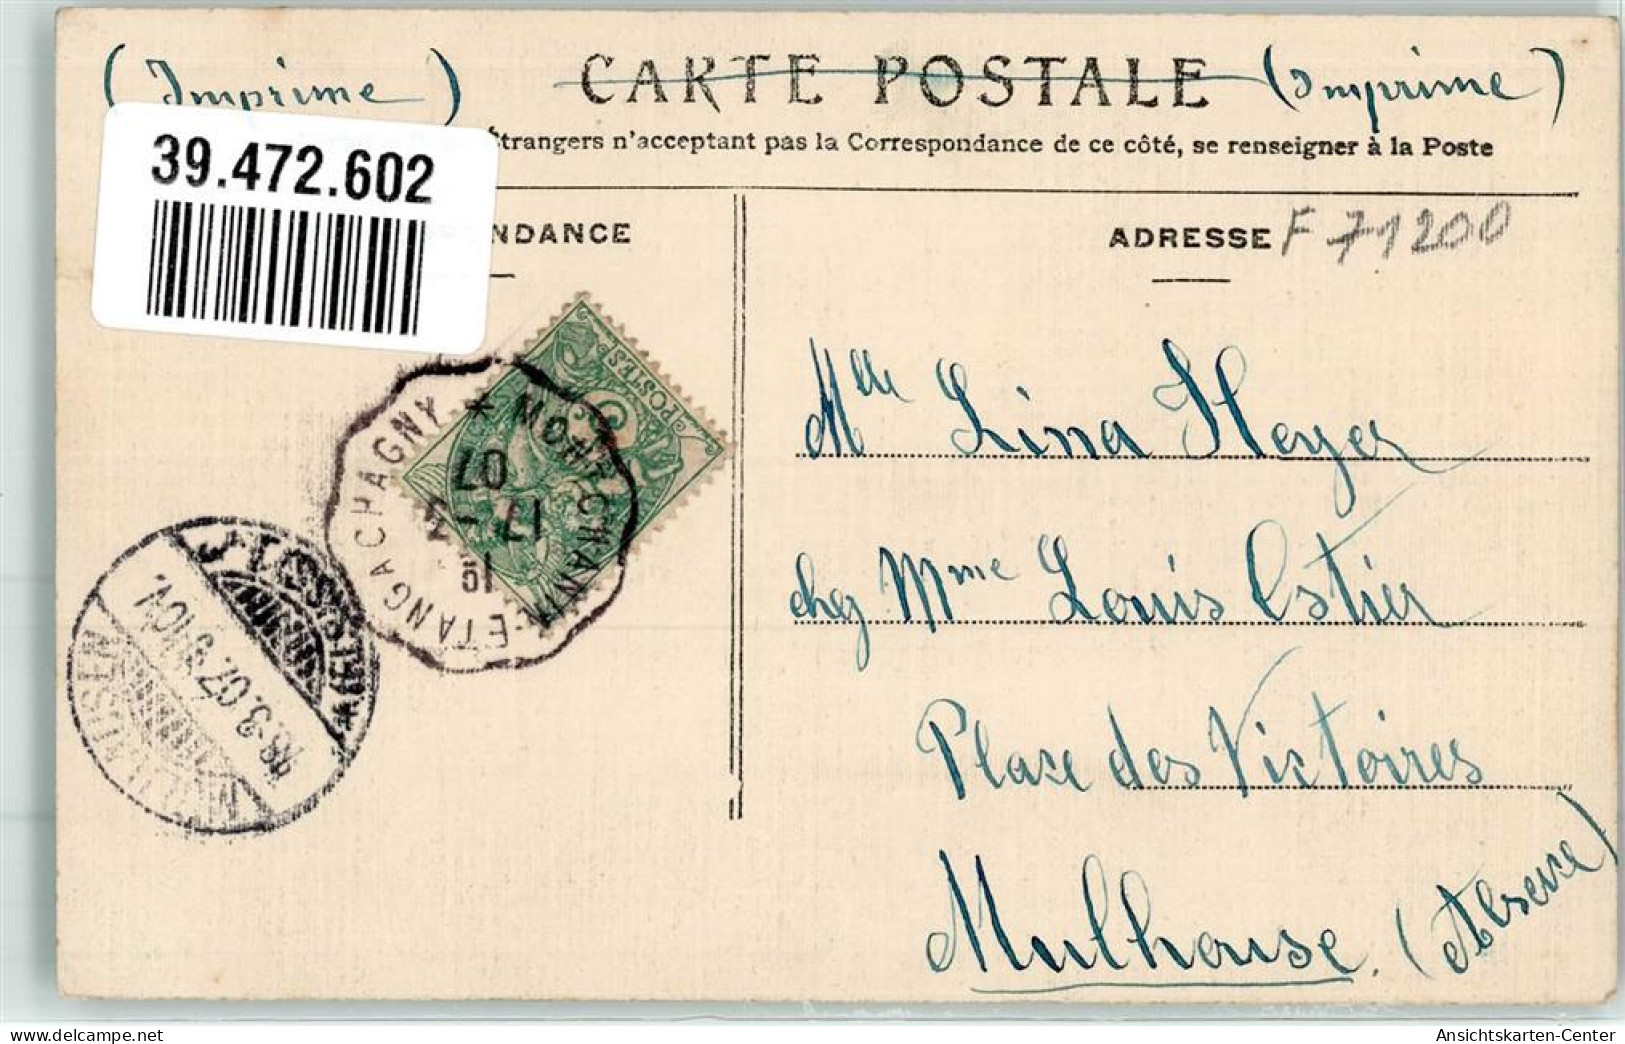 (Imprimé) CARTE POSTALE (Imprimé)
étrangers n'acceptant pas la Correspondance de ce côté, se renseigner à la Poste
39.472.602
NDANCE
ADRESSE F 71200
POSTES
MONTCHANIN-ETANG A CHAGNY *
07
17 -3
15
MÜLHAUSEN
18.3.07. 9-10V.
Mlle Lina Heyer
chez Mme Louis Ostier
Place des Victoires
Mulhouse. (Alsace)
Ansichtskarten-Center